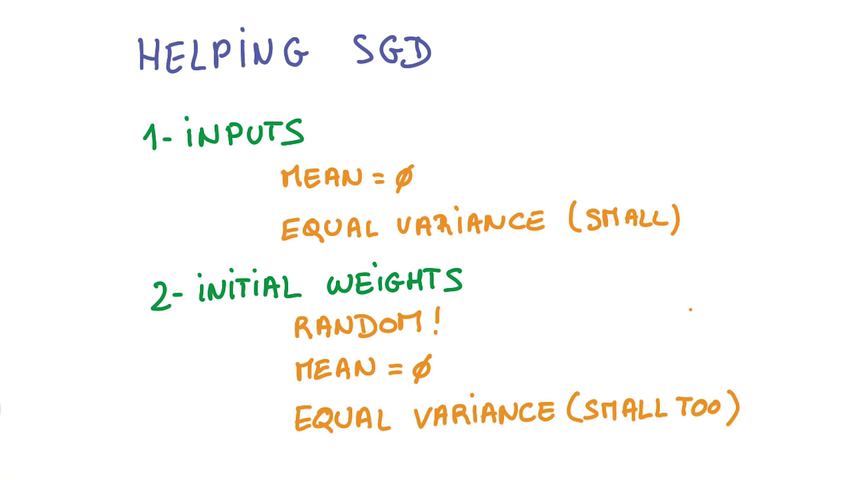 HELPING SGD
1- INPUTS
MEAN = ø
EQUAL VARIANCE (SMALL)
2- INITIAL WEIGHTS
RANDOM!
MEAN = ø
EQUAL VARIANCE (SMALL TOO)